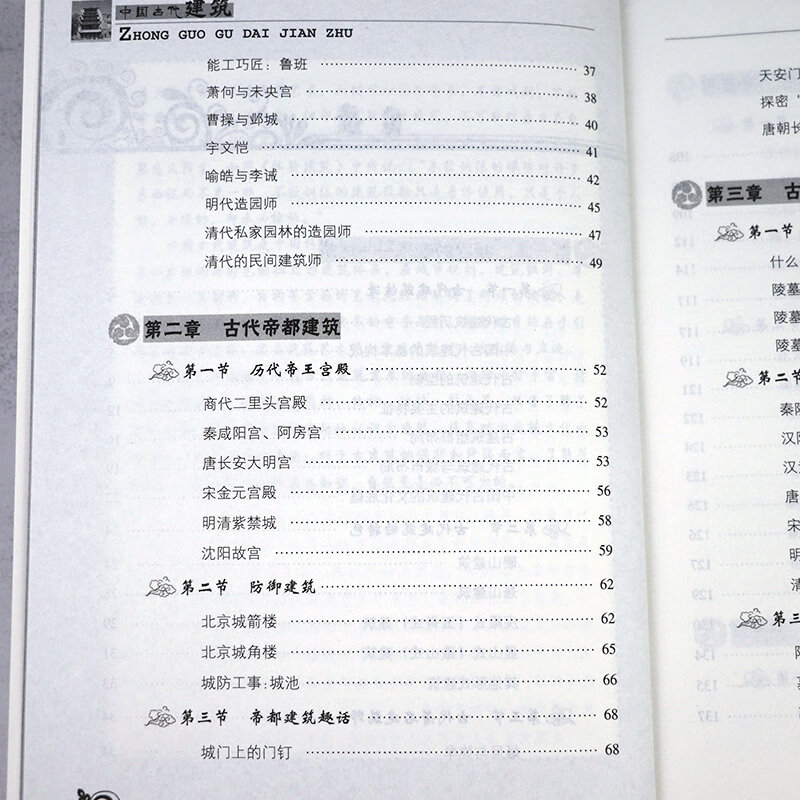 中国古代建筑
ZHONG GUO GU DAI JIAN ZHU
能工巧匠：鲁班 37
萧何与未央宫 38
曹操与邺城 40
宇文恺 41
喻皓与李诫 42
明代造园师 45
清代私家园林的造园师 47
清代的民间建筑师 49
第二章 古代帝都建筑
第一节 历代帝王宫殿 52
商代二里头宫殿 52
秦咸阳宫、阿房宫 53
唐长安大明宫 53
宋金元宫殿 56
明清紫禁城 58
沈阳故宫 59
第二节 防御建筑 62
北京城箭楼 62
北京城角楼 65
城防工事：城池 66
第三节 帝都建筑趣话 68
城门上的门钉 68
天安门
探密“
唐朝长
第三章 古
第一节
什么
陵墓
陵墓
陵墓
第二节
秦
汉
汉
唐
宋
明
清
第三